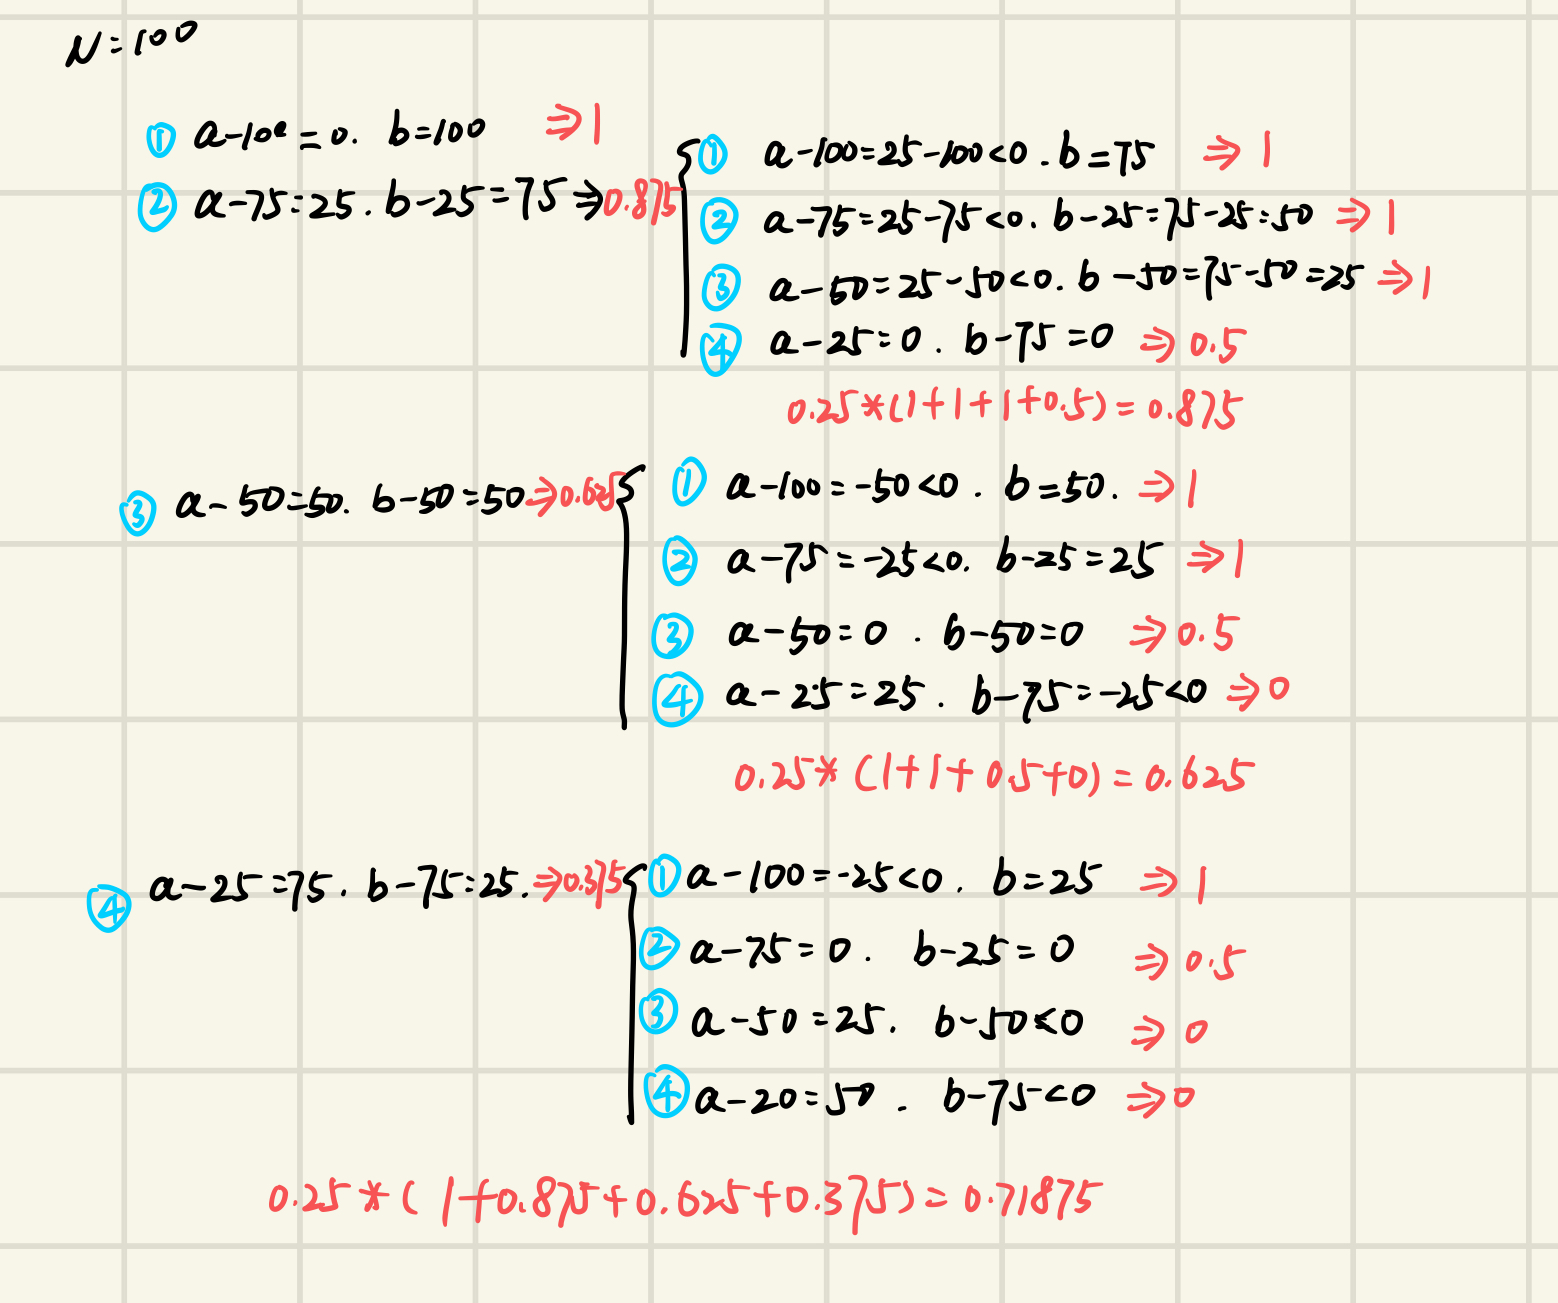 N=100
① a-100=0. b=100 ⇒1
② a-75=25. b-25=75 ⇒0.875
① a-100=25-100<0. b=75 ⇒1
② a-75=25-75<0. b-25=75-25=50 ⇒1
③ a-50=25-50<0. b-50=75-50=25 ⇒1
④ a-25=0. b-75=0 ⇒0.5
0.25*(1+1+1+0.5)=0.875
③ a-50=50. b-50=50 ⇒0.625
① a-100=-50<0. b=50. ⇒1
② a-75=-25<0. b-25=25 ⇒1
③ a-50=0. b-50=0 ⇒0.5
④ a-25=25. b-75=-25<0 ⇒0
0.25*(1+1+0.5+0)=0.625
④ a-25=75. b-75=25. ⇒0.375
① a-100=-25<0. b=25 ⇒1
② a-75=0. b-25=0 ⇒0.5
③ a-50=25. b-50<0 ⇒0
④ a-20=50. b-75<0 ⇒0
0.25*(1+0.875+0.625+0.375)=0.71875